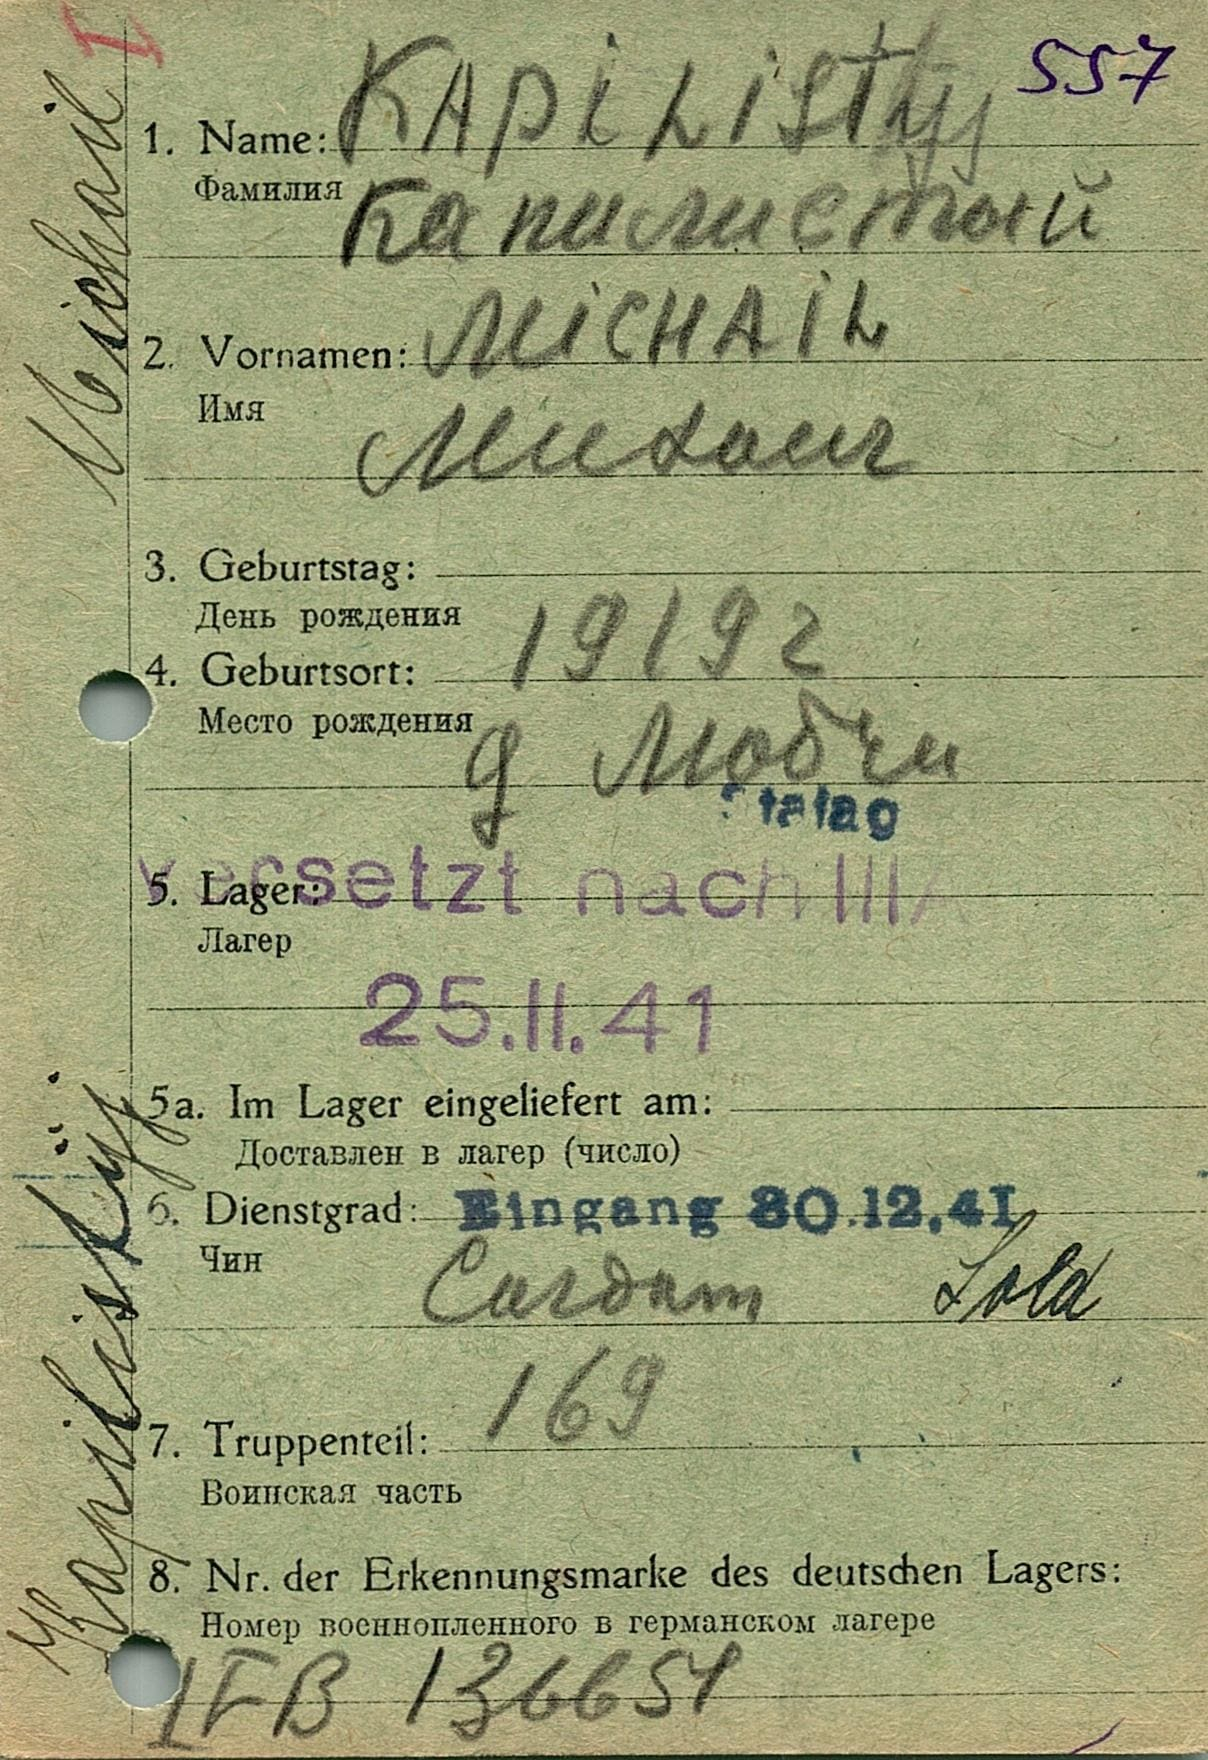 I
557
1. Name: KAPILISTyj
Фамилия Капилистый
2. Vornamen: MICHAIL
Имя
Михаил
3. Geburtstag:
День рождения 1919 г
4. Geburtsort:
Место рождения д Любчи
Stalag
versetzt nach III A
5. Lager:
Лагер
25.II.41
5a. Im Lager eingeliefert am:
Доставлен в лагер (число)
6. Dienstgrad: Eingang 30.12.41
Чин Солдат Sold
169
7. Truppenteil:
Воинская часть
8. Nr. der Erkennungsmarke des deutschen Lagers:
Номер военнопленного в германском лагере
IFB 136651
Kapilistÿj Michail